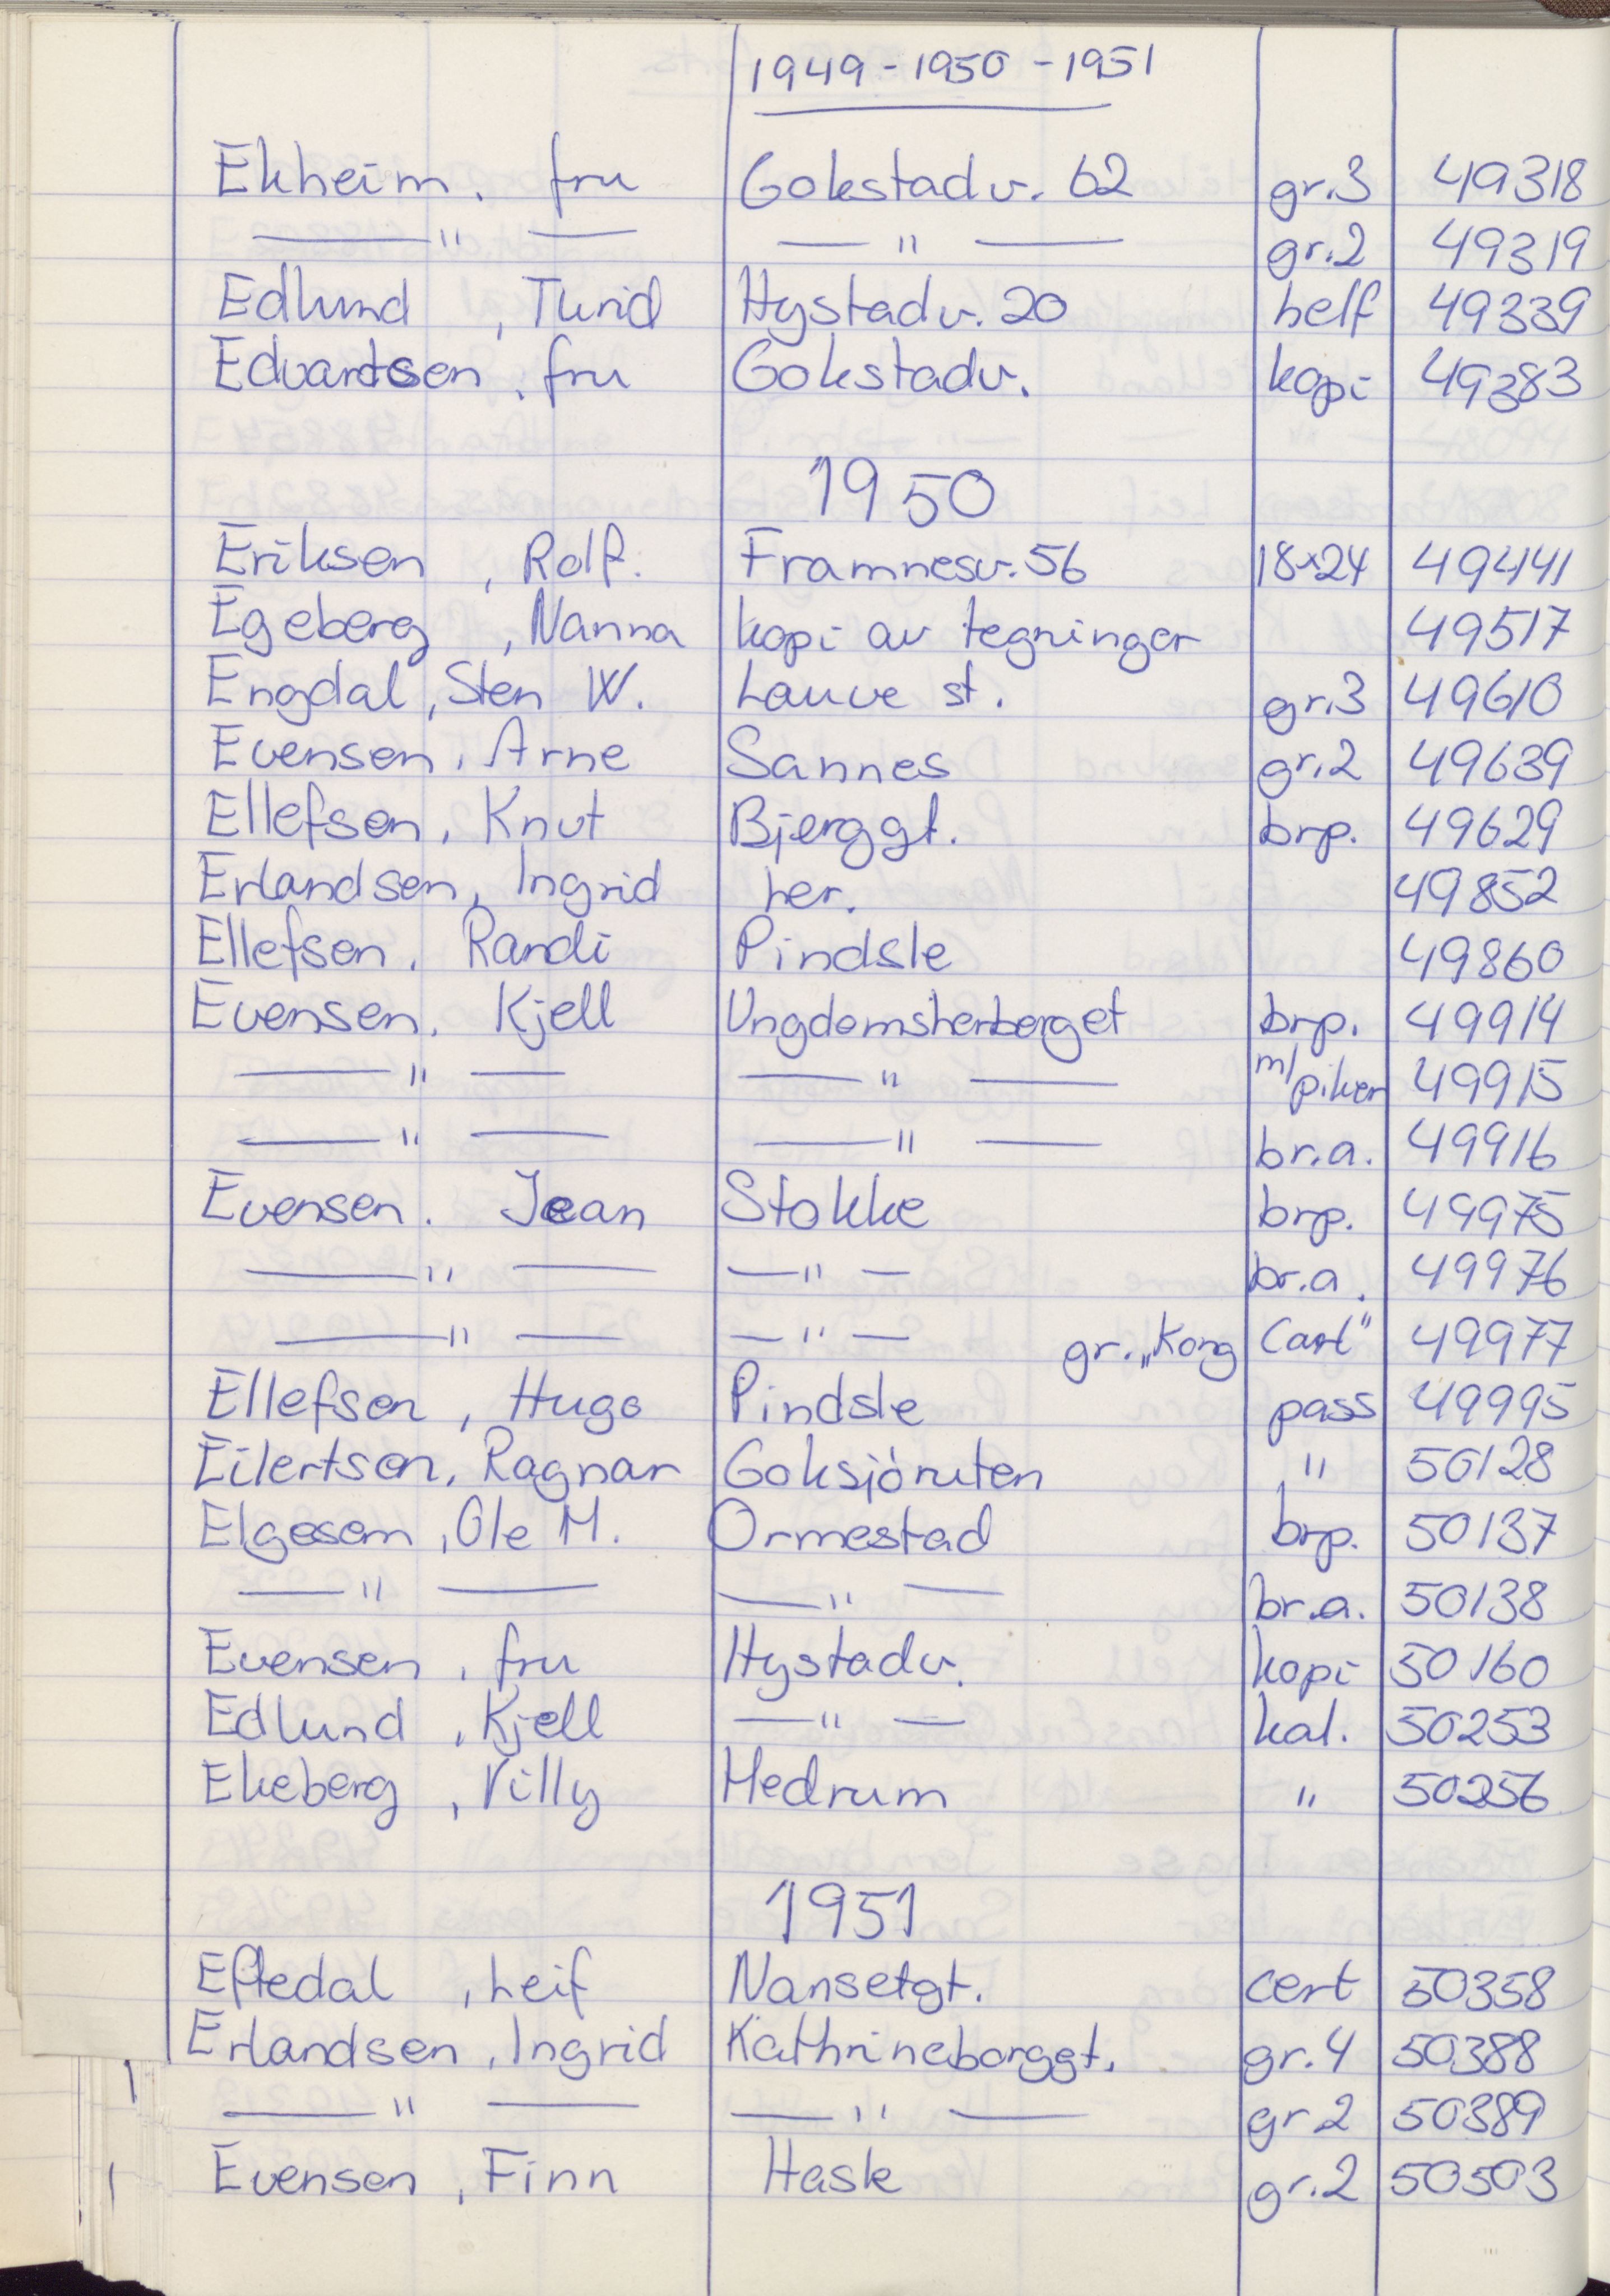 1949 - 1950 - 1951
Ekheim, fru Gokstadv. 62 gr.3 49318
— " — — " — gr.2 49319
Edlund, Turid Hystadv. 20 helf 49339
Edvardsen, fru Gokstadv. kopi 49383
1950
Eriksen, Rolf. Framnesv. 56 18x24 49441
Egeberg, Nanna kopi av tegninger 49517
Engdal, Sten W. Lauve st. gr.3 49610
Evensen, Arne Sannes gr.2 49639
Ellefsen, Knut Bjerggt. brp. 49629
Erlandsen, Ingrid her. 49852
Ellefsen, Randi Pindsle 49860
Evensen, Kjell Ungdomsherberget brp. 49914
— " — — " — m/piker 49915
— " — — " — br.a. 49916
Evensen. Jean Stokke brp. 49975
— " — — " — br.a. 49976
— " — — " — gr. „Kong Carl" 49977
Ellefsen, Hugo Pindsle pass 49995
Eilertsen, Ragnar Goksjöruten " 50128
Elgesem, Ole M. Ormestad brp. 50137
— " — — " — br.a. 50138
Evensen, fru Hystadv. kopi 50160
Edlund, Kjell — " — kal. 50253
Ekeberg, Villy Hedrum " 50256
1951
Eftedal, Leif Nansetgt. cert 50358
Erlandsen, Ingrid Kathrineborggt. gr.4 50388
— " — — " — gr 2 50389
Evensen, Finn Hask gr.2 50503